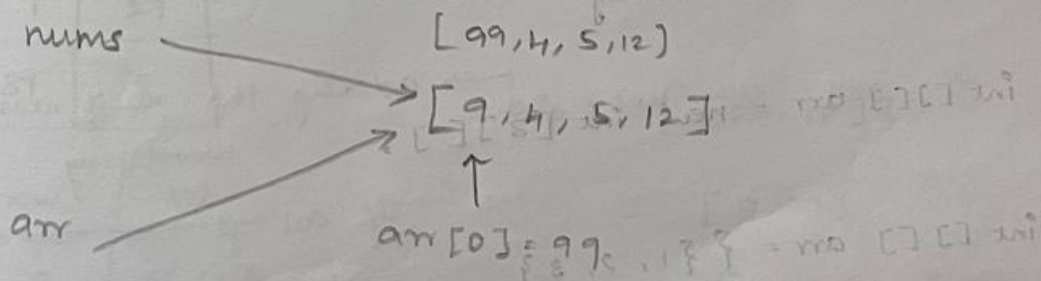 nums [99,4,5,12]
[9,4,5,12]
arr arr[0]=99